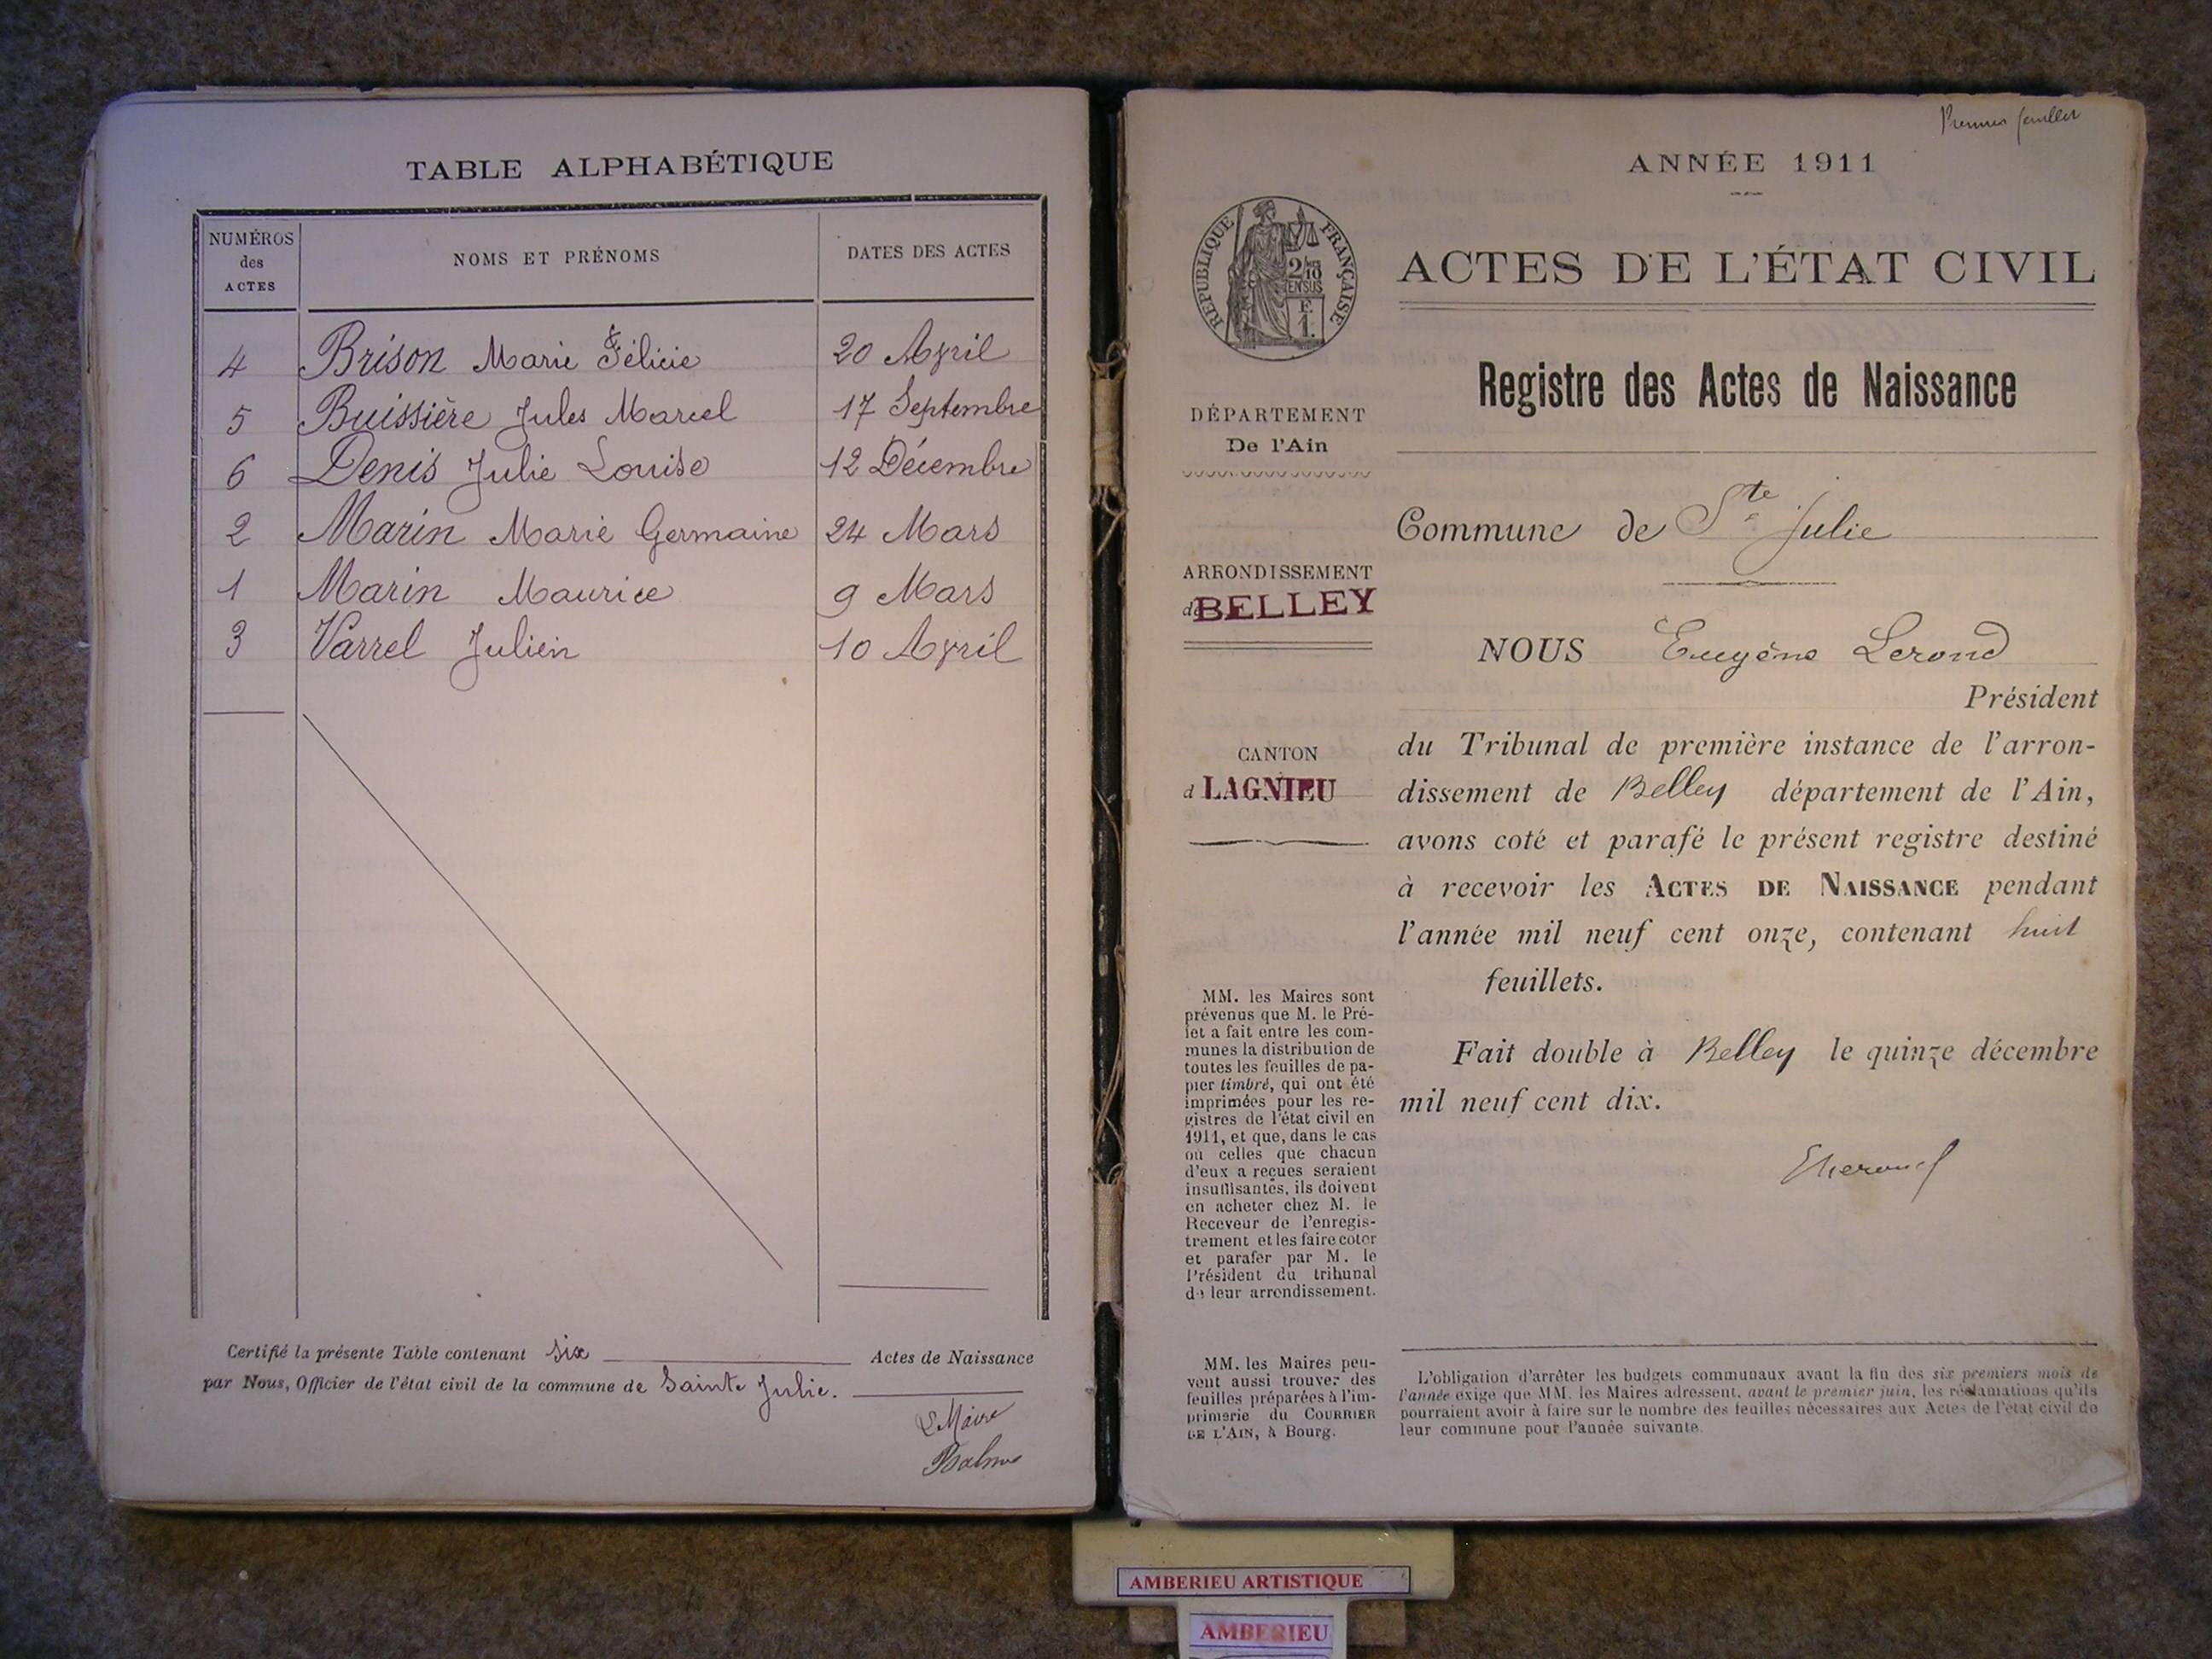 TABLE ALPHABÉTIQUE
NUMÉROS
des
ACTES
NOMS ET PRÉNOMS
DATES DES ACTES
4 Brison Marie Félicie 20 Avril
5 Buissière Jules Marcel 17 Septembre
6 Denis Julie Louise 12 Décembre
2 Marin Marie Germaine 24 Mars
1 Marin Maurice 9 Mars
3 Varrel Julien 10 Avril
Certifié la présente Table contenant six Actes de Naissance
par Nous, Officier de l'état civil de la commune de Sainte Julie.
Le Maire
Premier feuillet
ANNÉE 1911
RÉPUBLIQUE FRANÇAISE
2/10
EN SUS
F.
1.
ACTES DE L'ÉTAT CIVIL
Registre des Actes de Naissance
DÉPARTEMENT
De l'Ain
Commune de Ste Julie
ARRONDISSEMENT
de BELLEY
NOUS Eugène Lerond
Président
CANTON
d LAGNIEU
du Tribunal de première instance de l'arron-
dissement de Belley département de l'Ain,
avons coté et parafé le présent registre destiné
à recevoir les ACTES DE NAISSANCE pendant
l'année mil neuf cent onze, contenant huit
feuillets.
Fait double à Belley le quinze décembre
mil neuf cent dix.
MM. les Maires sont
prévenus que M. le Pré-
fet a fait entre les com-
munes la distribution de
toutes les feuilles de pa-
pier timbré, qui ont été
imprimées pour les re-
gistres de l'état civil en
1911, et que, dans le cas
où celles que chacun
d'eux a reçues seraient
insuffisantes, ils doivent
en acheter chez M. le
Receveur de l'enregis-
trement et les faire coter
et parafer par M. le
Président du tribunal
de leur arrondissement.
MM. les Maires peu-
vent aussi trouver des
feuilles préparées à l'im-
primerie du COURRIER
DE L'AIN, à Bourg.
L'obligation d'arrêter les budgets communaux avant la fin des six premiers mois de
l'année exige que MM. les Maires adressent, avant le premier juin, les réclamations qu'ils
pourraient avoir à faire sur le nombre des feuilles nécessaires aux Actes de l'état civil de
leur commune pour l'année suivante.
AMBERIEU ARTISTIQUE
AMBERIEU